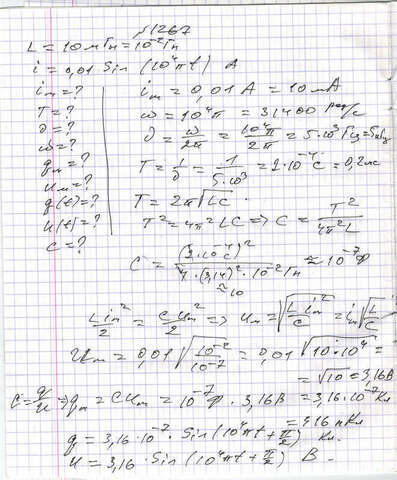 №1267
L = 10 мГн = 10⁻² Гн
i = 0,01 Sin (10⁴πt) A
iₘ = ?
T = ?
ν = ?
ω = ?
qₘ = ?
uₘ = ?
q(t) = ?
u(t) = ?
c = ?
iₘ = 0,01 A = 10 мА
ω = 10⁴π = 31400 рад/с
ν = ω/2π = 10⁴π/2π = 5·10³ Гц = 5 кГц
T = 1/ν = 1/5·10³ = 2·10⁻⁴ c = 0,2 мс
T = 2π√LC .
T² = 4π² LC => C = T²/4π²L
C = (2·10⁻⁴c)²/4·(3,14)²·10⁻² Гн ≈ 10⁻⁷ Ф
≈10
L iₘ²/2 = C uₘ²/2 => uₘ = √(L iₘ²/C) = iₘ√(L/C)
Uₘ = 0,01 √(10⁻²/10⁻⁷) = 0,01 √(10·10⁴) =
= √10 = 3,16 В
C = q/u => qₘ = C Uₘ = 10⁻⁷ Ф · 3,16 В = 3,16·10⁻⁷ Кл
q = 3,16·10⁻⁷· Sin (10⁴πt + π/2) Кл.
u = 3,16 · Sin (10⁴πt + π/2) В.